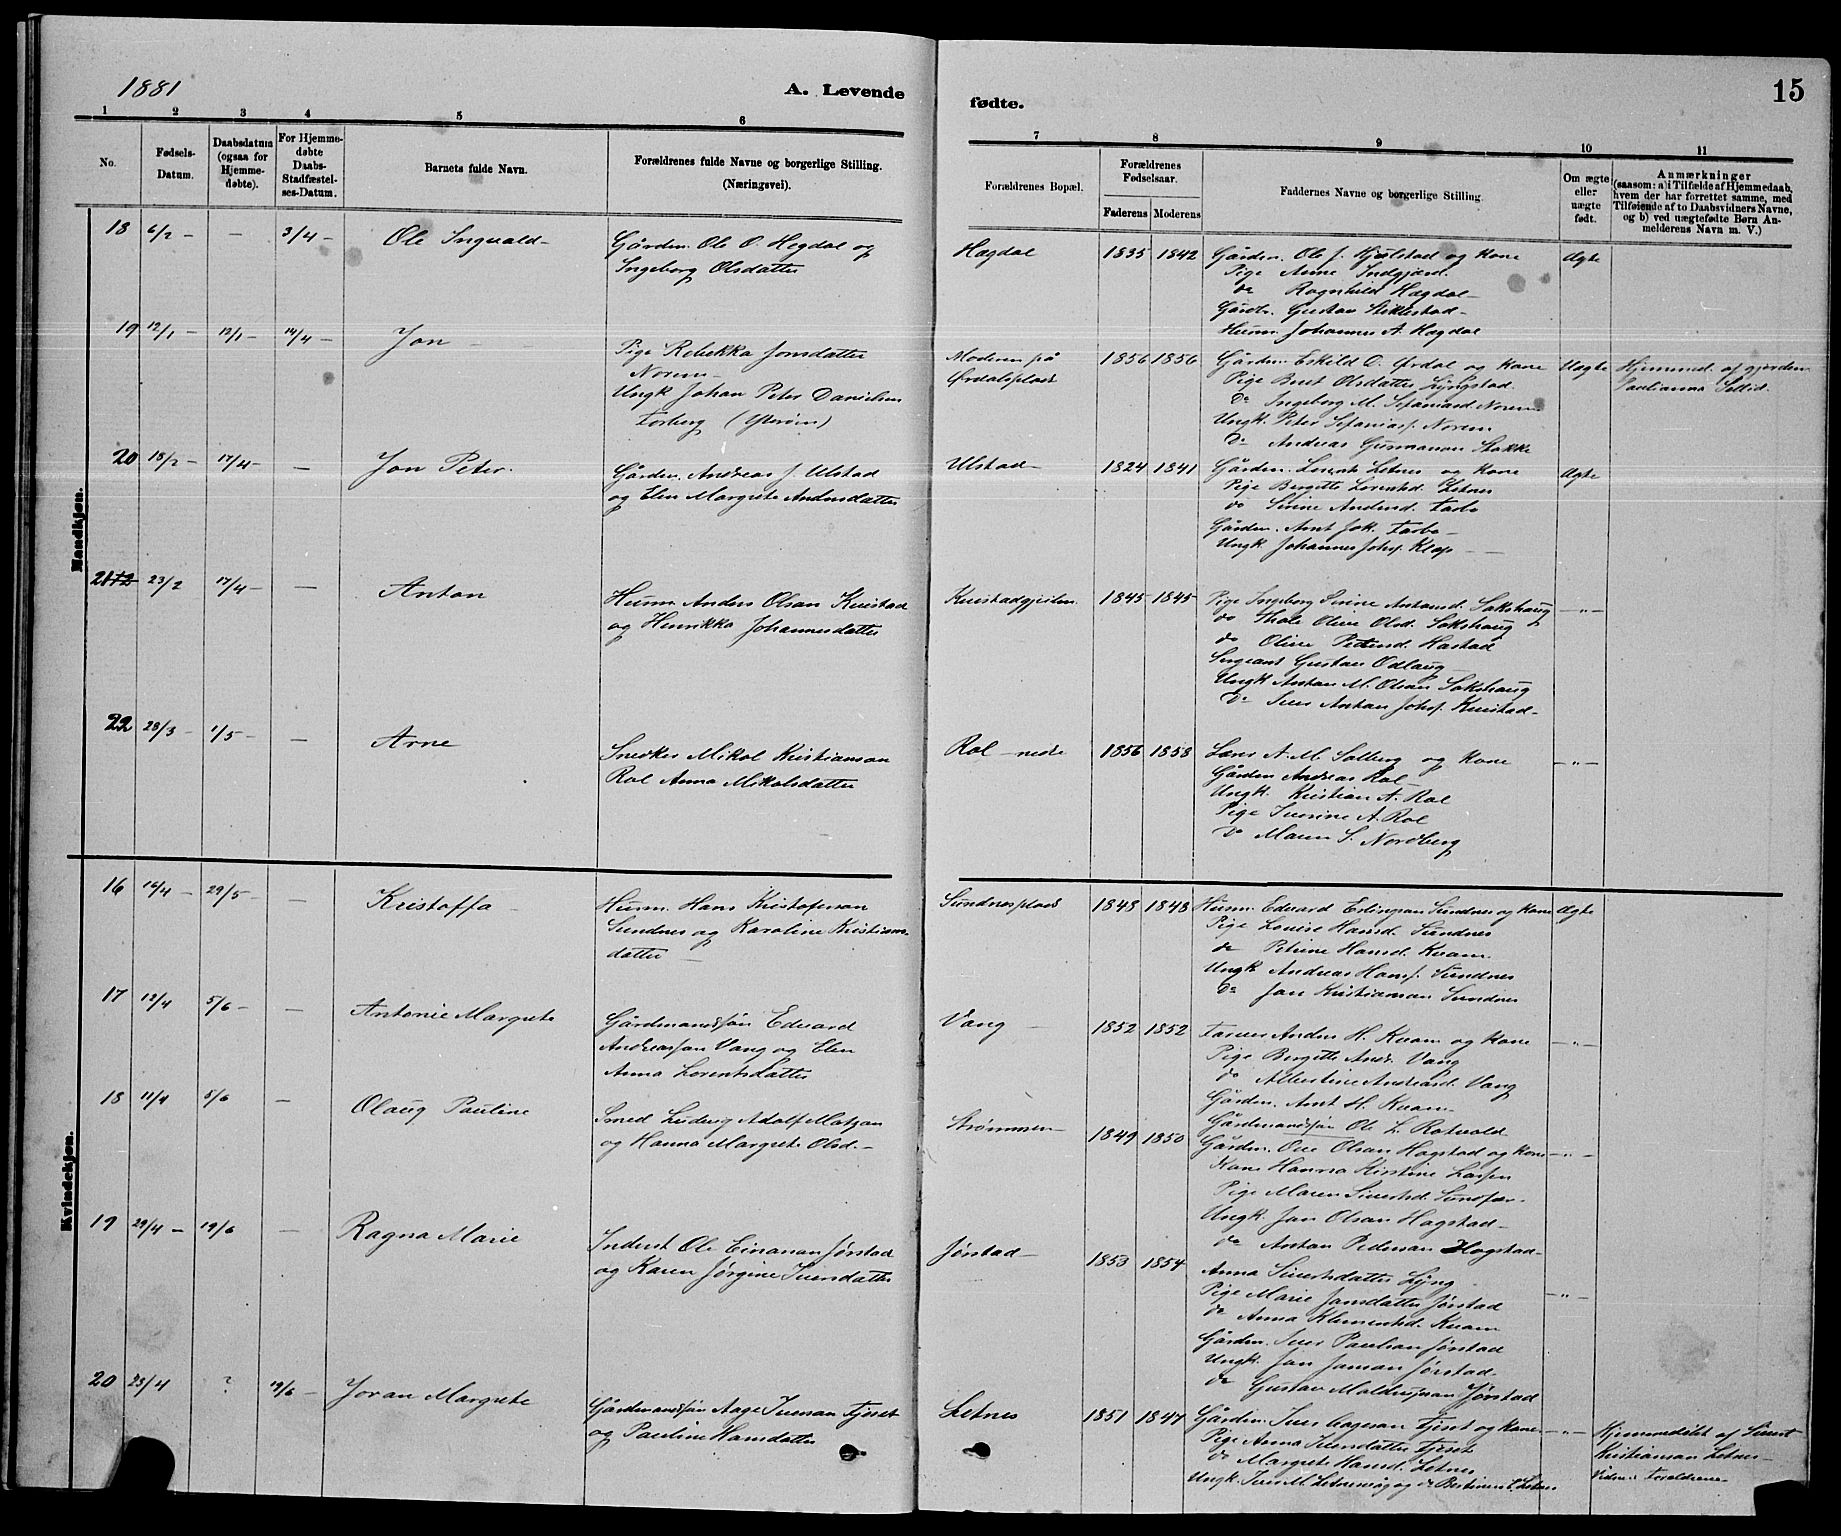 1881
A. Levende
fødte.
15
1 2 3 4 5 6
7 8 9 10 11
No.
Fødsels-Datum.
Daabsdatum (ogsaa for Hjemmedøbte).
For Hjemmedøbte Daabs-Stadfæstelses-Datum.
Barnets fulde Navn.
Forældrenes fulde Navne og borgerlige Stilling.
(Næringsvei).
Forældrenes Bopæl.
Forældrenes Fødselsaar.
Faderens Moderens
Faddernes Navne og borgerlige Stilling.
Om ægte eller uægte født.
Anmærkninger
(saasom: a) i Tilfælde af Hjemmedaab, hvem der har forrettet samme, med Tilføiende af to Daabsvidners Navne, og b) ved uægtefødte Børn Anmelderens Navn m. V.)
Mandkjøn.
18 6/2 – – 3/4 – Ole Ingvald –
Gårdm. Ole O. Hegdal og
Ingeborg Olsdatter
Hægdal 1835 1842
Gårdm. Ole J. Hjulstad og Kone
Pige Anne Indgjerd.
do Ragnhild Hægdal –
Gårdbr. Gustav Stiklestad –
Husm. Johannes A. Hægdal
Ægte
19 12/1 – 12/1 – 14/4 – Jon
Pige Rebekka Jonsdatter
Norem –
Ungk. Johan Peter Danielsen
Forberg (Ytterøen)
Moderen på
Ørdalsplads
1856 1856
Gårdm. Eskild O. Ørdal og Kone
Pige Berit Olsdatter Lyngstad.
Do Ingeborg M. Sefaniasd. Norem
Ungk. Peter Sefaniasf. Norem
Do Andreas Gunnarson Stokke
Uægte
Hjemmed. af gjordem.
Paulianna
20 18/2 – 17/4 – – Jon Peter.
Gårdm. Andreas J. Ulstad
og Elen Margrete Andersdatter
Ulstad – 1824 1841
Gårdm. Lorents Letnes og Kone
Pige Bergitte Lorentsd. Letnes
do Sirine Andersd. Tarbo
Gårdm. Arnt Joh. Tarbo –
Ungk. Johannes Johsf. Klep –
Ægte
21 23/2 17/4 – – Anton
Husm. Anders Olsen Kvistad
og Henrikka Johannesdatter
Kvistadgjeilen. 1845 1845
Pige Ingeborg Sirine Antonsd. Sakshaug
do Thale Oline Olsd. Sakshaug
do Oline Petersd. Hastad
Sergeant Gustav Odlaug
Ungk. Anton M. Olsen Sakshaug
Do Iver Anton Johsf. Kvistad –
– " –
22 28/3 – 1/5 – – Arne
Snedker Mikal Kristianson
Rol Anna Mikalsdatter
Rol – nedre 1856 1858
Lærer A. M. Salberg og Kone
Gårdm Andreas Rol –
Ungk. Kristian A. Rol
Pige Iverine A. Rol
Do Maren S. Nordberg
– " –
Kvindekjøn.
16 16/4 – 29/5 – – Kristoffa –
Husm. Hans Kristoferson
Sundnes og Karoline Kristians-
datter –
Sundnesplads 1848 1848
Husm. Edvard Erlingsen Sundnes og Kone
Pige Louise Hansd. Sundnes
do Petrine Hansd. Kvam.
Ungk Andreas Hansf. Sundnes
Do Jon Kristianson Sundnes
Ægte
17 13/4 5/6 – – Antonie Margrete
Gårdmandsøn Edvard
Andreassen Vang og Elen
Anna Lorentsdatter
Vang – 1852 1852
Farver Anders H. Kvam og Kone
Pige Bergitte Andr. Vang
do Albertine Andreasd. Vang
Gårdm. Arnt H. Kvam –
Gårdmandsøn Ole L. Rotvold
– " –
18 11/4 5/6 – Olaug Pauline
Smed Ludvig Adolf Matzon
og Hanna Margrete Olsd. –
Strømmen – 1849 1850
Gårdm. Ove Olsen Hagstad og Kone
Kone Hanna Kirstine Larsen
Pige Maren Sivertsd. Sundfær.
Ungk. Jon Olsen Hagstad –
do Anton Pedersen Hogstad –
– " –
19 29/4 – 19/6 – Ragna Marie
Inderst Ole Einarsen Jørstad
og Karen Jørgine Iversdatter
Jørstad – 1853 1854
Anna Sivertsdatter Lyng
Pige Marie Jonsdatter Jørstad
do Anna Klemetsd. Kvam
Gårdm. Iver Paulsen Jørstad
Ungk. Jon Jonson Jørstad.
do Gustav Jørstad
– " –
20 23/4 ? 19/6 – Joran Margrete
Gårdmandsøn Aage Iverson Fjeset
og Pauline Hansdatter
Letnes 1851 1847
Gårdm. Iver Aagesen Fjeset og Kone
Pige Anna Iversdatter Fjeset
do Margrete Hansd. Letnes
Ungk. Iver M. Letnes og do Letnes
– " –
Hjemmedøbt af Sivert
Kristianson Letnes –
Vidner: Forældrene